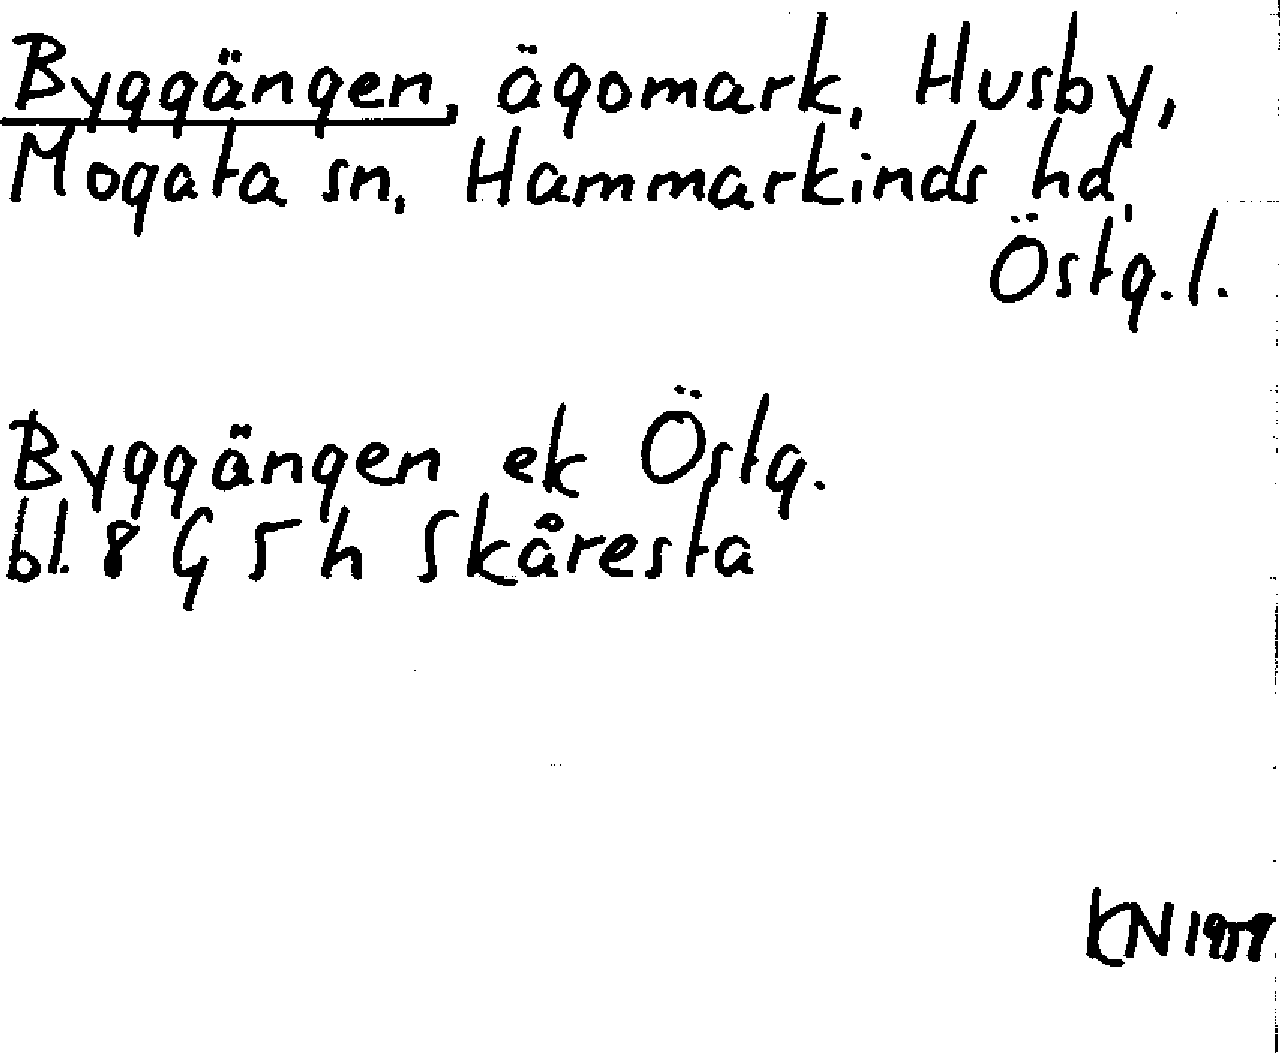 Byggängen, ägomark, Husby,
Mogata sn, Hammarkinds hd,
Östg. l.
Byggängen ek Östg.
bl. 8 G 5 h Skåresta
KN 1959